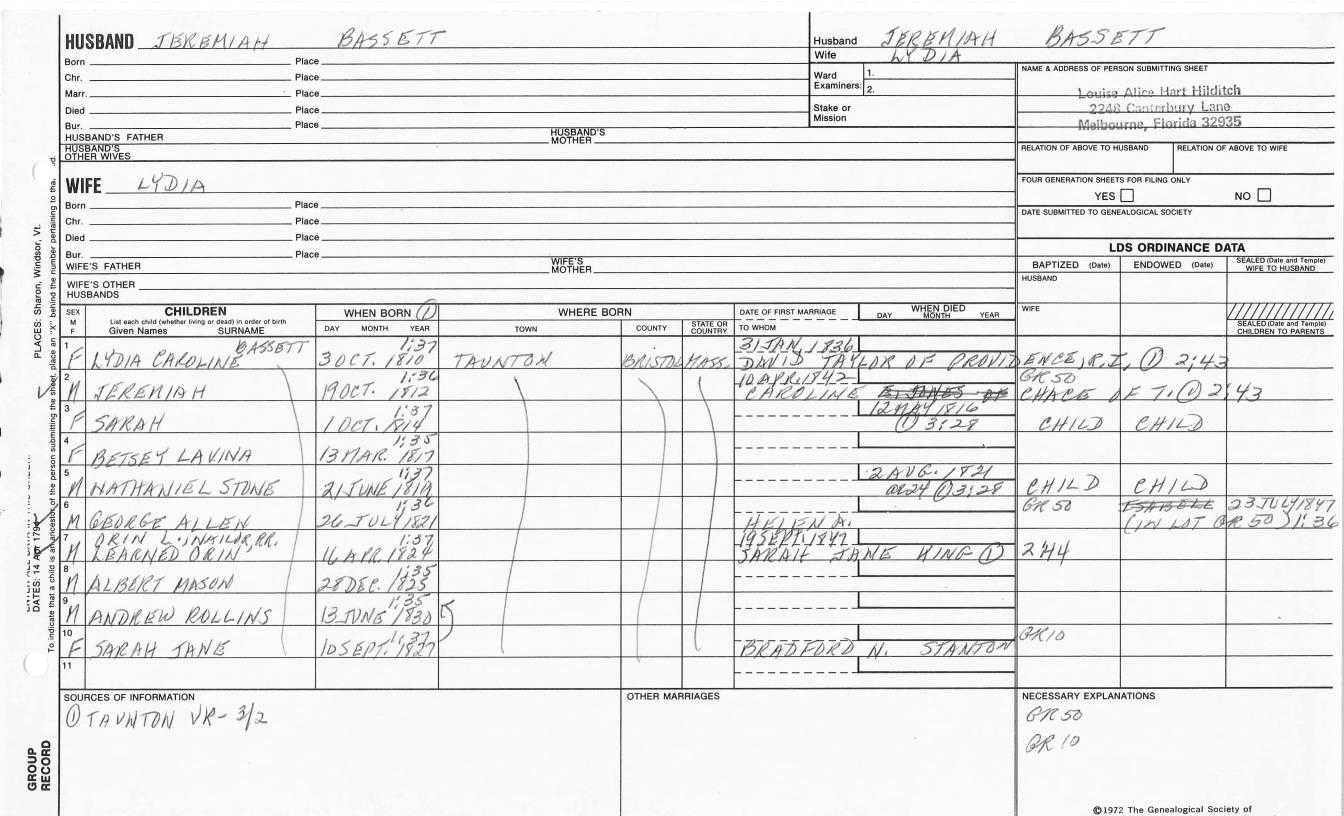 HUSBAND JEREMIAH BASSETT
Born Place
Chr. Place
Marr. Place
Died Place
Bur. Place
HUSBAND'S FATHER HUSBAND'S MOTHER
HUSBAND'S OTHER WIVES
Husband JEREMIAH BASSETT
Wife LYDIA
Ward Examiners: 1. 2.
Stake or Mission
NAME & ADDRESS OF PERSON SUBMITTING SHEET
Louise Alice Hart Hilditch
2248 Canterbury Lane
Melbourne, Florida 32935
RELATION OF ABOVE TO HUSBAND RELATION OF ABOVE TO WIFE
FOUR GENERATION SHEETS FOR FILING ONLY
YES NO
DATE SUBMITTED TO GENEALOGICAL SOCIETY
WIFE LYDIA
Born Place
Chr. Place
Died Place
Bur. Place
WIFE'S FATHER WIFE'S MOTHER
WIFE'S OTHER HUSBANDS
LDS ORDINANCE DATA
BAPTIZED (Date) ENDOWED (Date) SEALED (Date and Temple) WIFE TO HUSBAND
HUSBAND
WIFE
SEALED (Date and Temple) CHILDREN TO PARENTS
SEX M F
CHILDREN
List each child (whether living or dead) in order of birth
Given Names SURNAME
WHEN BORN ①
DAY MONTH YEAR
WHERE BORN
TOWN COUNTY STATE OR COUNTRY
DATE OF FIRST MARRIAGE
TO WHOM
WHEN DIED
DAY MONTH YEAR
BASSETT 1:37 31 JAN. 1836
1 F LYDIA CAROLINE 3 OCT. 1810 TAUNTON BRISTOL MASS. DAVID TAYLOR OF PROVIDENCE, R.I. ① 2:43
1:36 10 APR. 1842 GR 50
2 M JEREMIAH 19 OCT. 1812 CAROLINE E. JONES OF CHACE OF T. ① 2:43
1:37 12 MAY 1816
3 F SARAH 1 OCT. 1814 ① 3:28 CHILD CHILD
1:35
4 F BETSEY LAVINA 13 MAR. 1817
1:37 2 AUG. 1821
5 M NATHANIEL STONE 21 JUNE 1819 OR 24 ① 3:28 CHILD CHILD
1:36 GR 50 ESABELL 23 JULY 1847
6 M GEORGE ALLEN 26 JULY 1821 HELEN A. (IN LOT GR 50) 1:36
ORIN L. IN 19 SEPT. 1847
7 M LEARNED ORIN 16 APR. 1824 SARAH JANE KING ① 2:44
1:35
8 M ALBERT MASON 28 DEC. 1825
1:35
9 M ANDREW ROLLINS 13 JUNE 1830
1:37 GR 10
10 F SARAH JANE 10 SEPT. 1827 BRADFORD N. STANTON
11
SOURCES OF INFORMATION
① TAUNTON VR- 3/2
OTHER MARRIAGES
NECESSARY EXPLANATIONS
GR 50
GR 10
©1972 The Genealogical Society of
PLACES: Sharon, Windsor, Vt.
DATES: 14 Apr 179
To indicate that a child is an ancestor of the person submitting the sheet, place an "X" behind the number pertaining to tha
GROUP RECORD